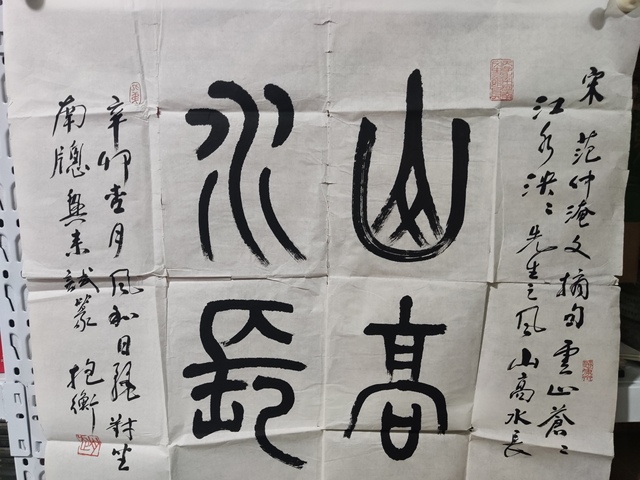 宋范仲淹文摘句雲山蒼〻
江水泱〻先生之風山高水長
山高
水長
辛卯壹月風和日麗對坐
南牕興来試篆 抱衡